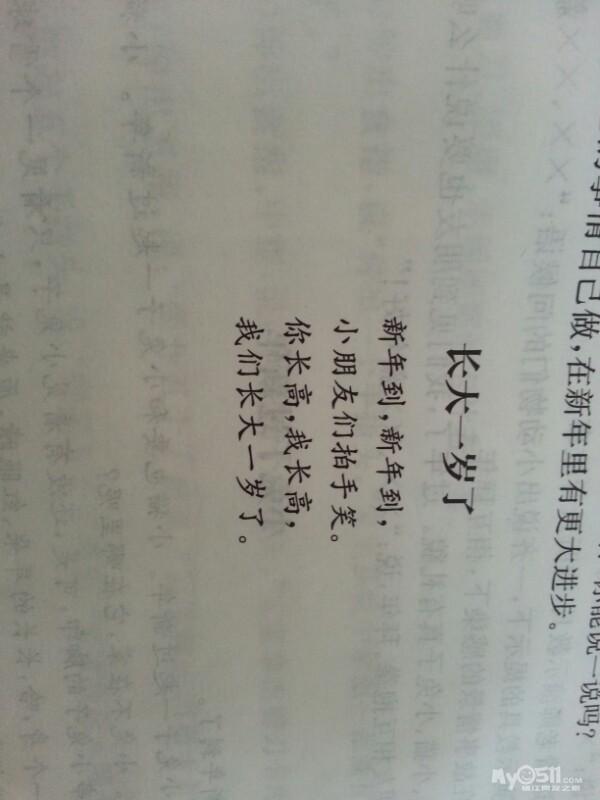 你能说一说吗?
的事情自己做,在新年里有更大进步。
长大一岁了
新年到,新年到,
小朋友们拍手笑。
你长高,我长高,
我们长大一岁了。
My0511.com
镇江网友之家